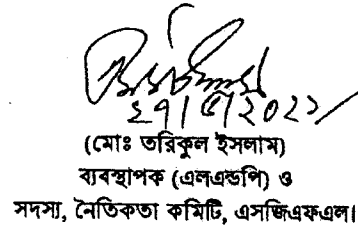 (মোঃ তরিকুল ইসলাম)
ব্যবস্থাপক (এলএন্ডপি) ও
সদস্য, নৈতিকতা কমিটি, এসজিএফএল।